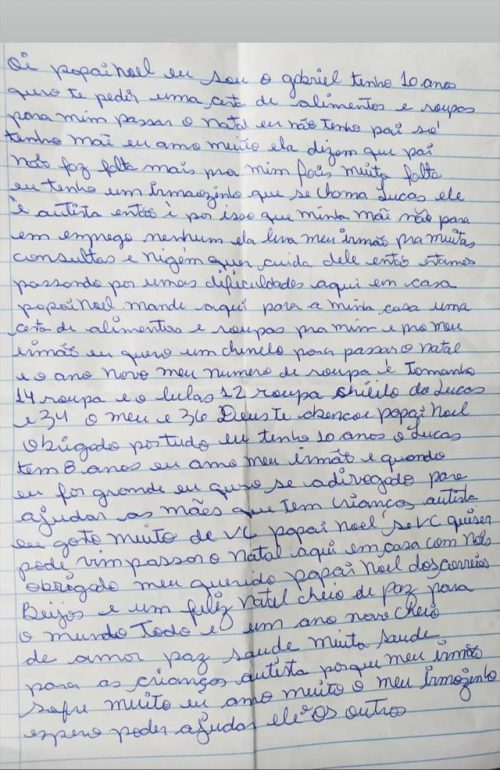 Oi papai Noel eu sou o gabriel tenho 10 anos
quero te pedir uma ceta de alimentos e roupas
para mim passar o natal eu não tenho pai só
tenho mãe eu amo muito ela dizem que pai
não faz falta mais pra mim fais muita falta
eu tenho um irmaozinho que se chama Lucas ele
é autista então é por isso que minha mãe não para
em emprego nenhum ela leva meu irmão pra muitas
consultas e nigem quer cuida dele então estamos
passando por umas dificuldades aqui em casa
papai noel mande aqui para a minha casa uma
ceta de alimentas e roupas pra mim e pro meu
irmão eu quero um chinelo para passar o natal
e o ano novo meu numero de roupa é Tamanho
14 roupa e o lulas 12 roupa do Lucas
e 34 o meu e 36 Deus te abencoe papai noel
Obrigado por tudo eu tenho 10 anos o Lucas
tem 8 anos eu amo meu irmão e quando
eu for grande eu quro se adivogado para
ajudar as mães que tem crianças autista
eu goto muito de VC papai noel se VC quiser
pode vim passar o natal aqui em casa com nós
obrigado meu querido papai noel dos correios
Beijos e um feliz natel cheio de paz para
o mundo Todo e um ano novo cheio
de amor paz saude muita saude
para as crianças autista porque meu irmão
sofre muito eu amo muito o meu irmozinho
espero poder ajudar ele e os outros